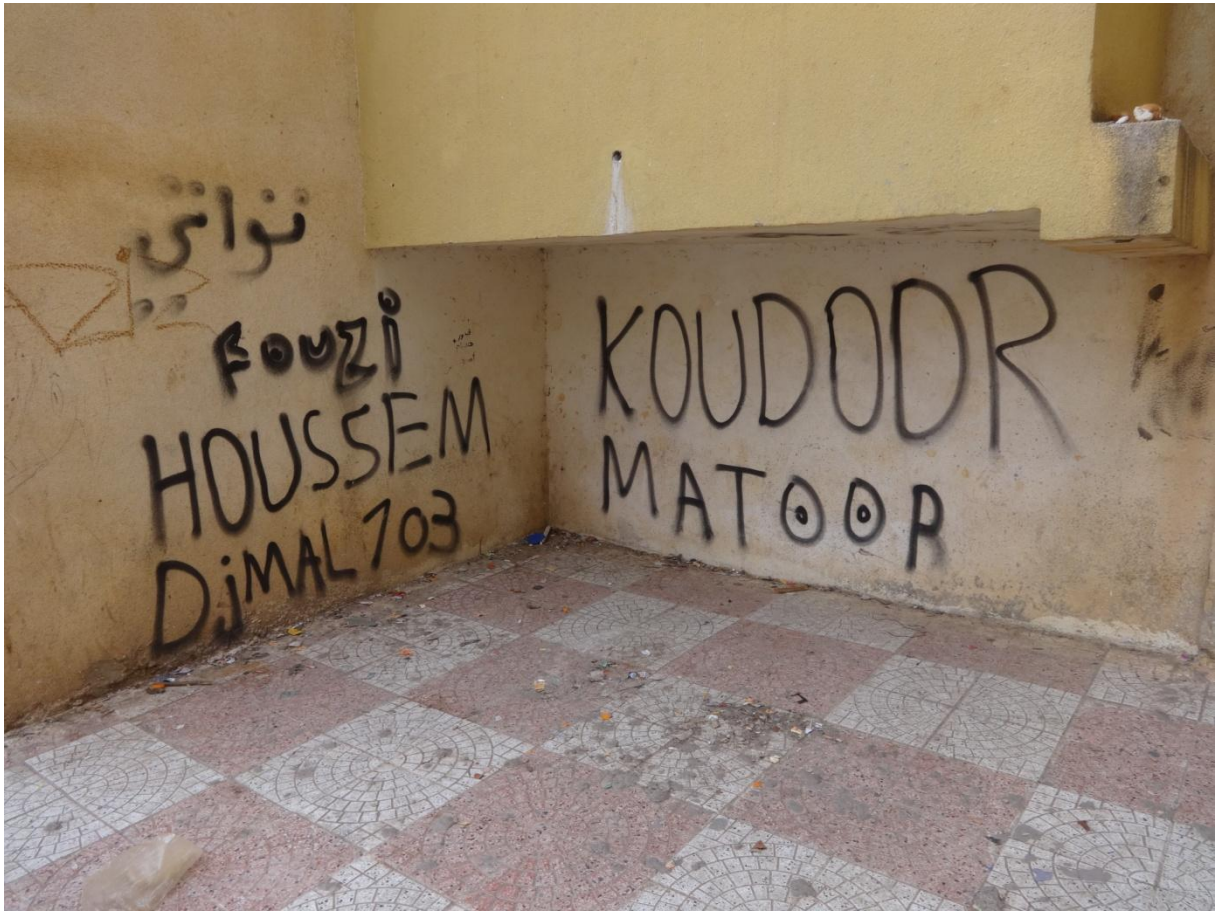 نواتي
FOUZi
HOUSSEM
DjMAL 103
KOUDOOR
MATOOR